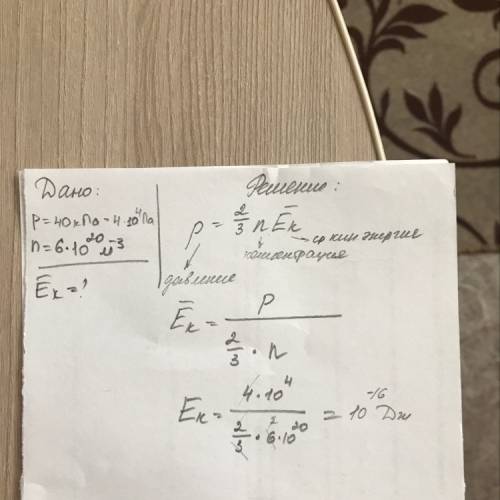 Дано:
P = 40 кПа = 4·10⁴ Па
n = 6·10²⁰ м⁻³
Ēₖ = ?
Решение:
p = 2/3 n Ēₖ
ср кин энергие
концентрация
давление
Ēₖ = P / (2/3 · n)
Eₖ = 4·10⁴ / (2/3 · 6·10²⁰) = 10⁻¹⁶ Дж